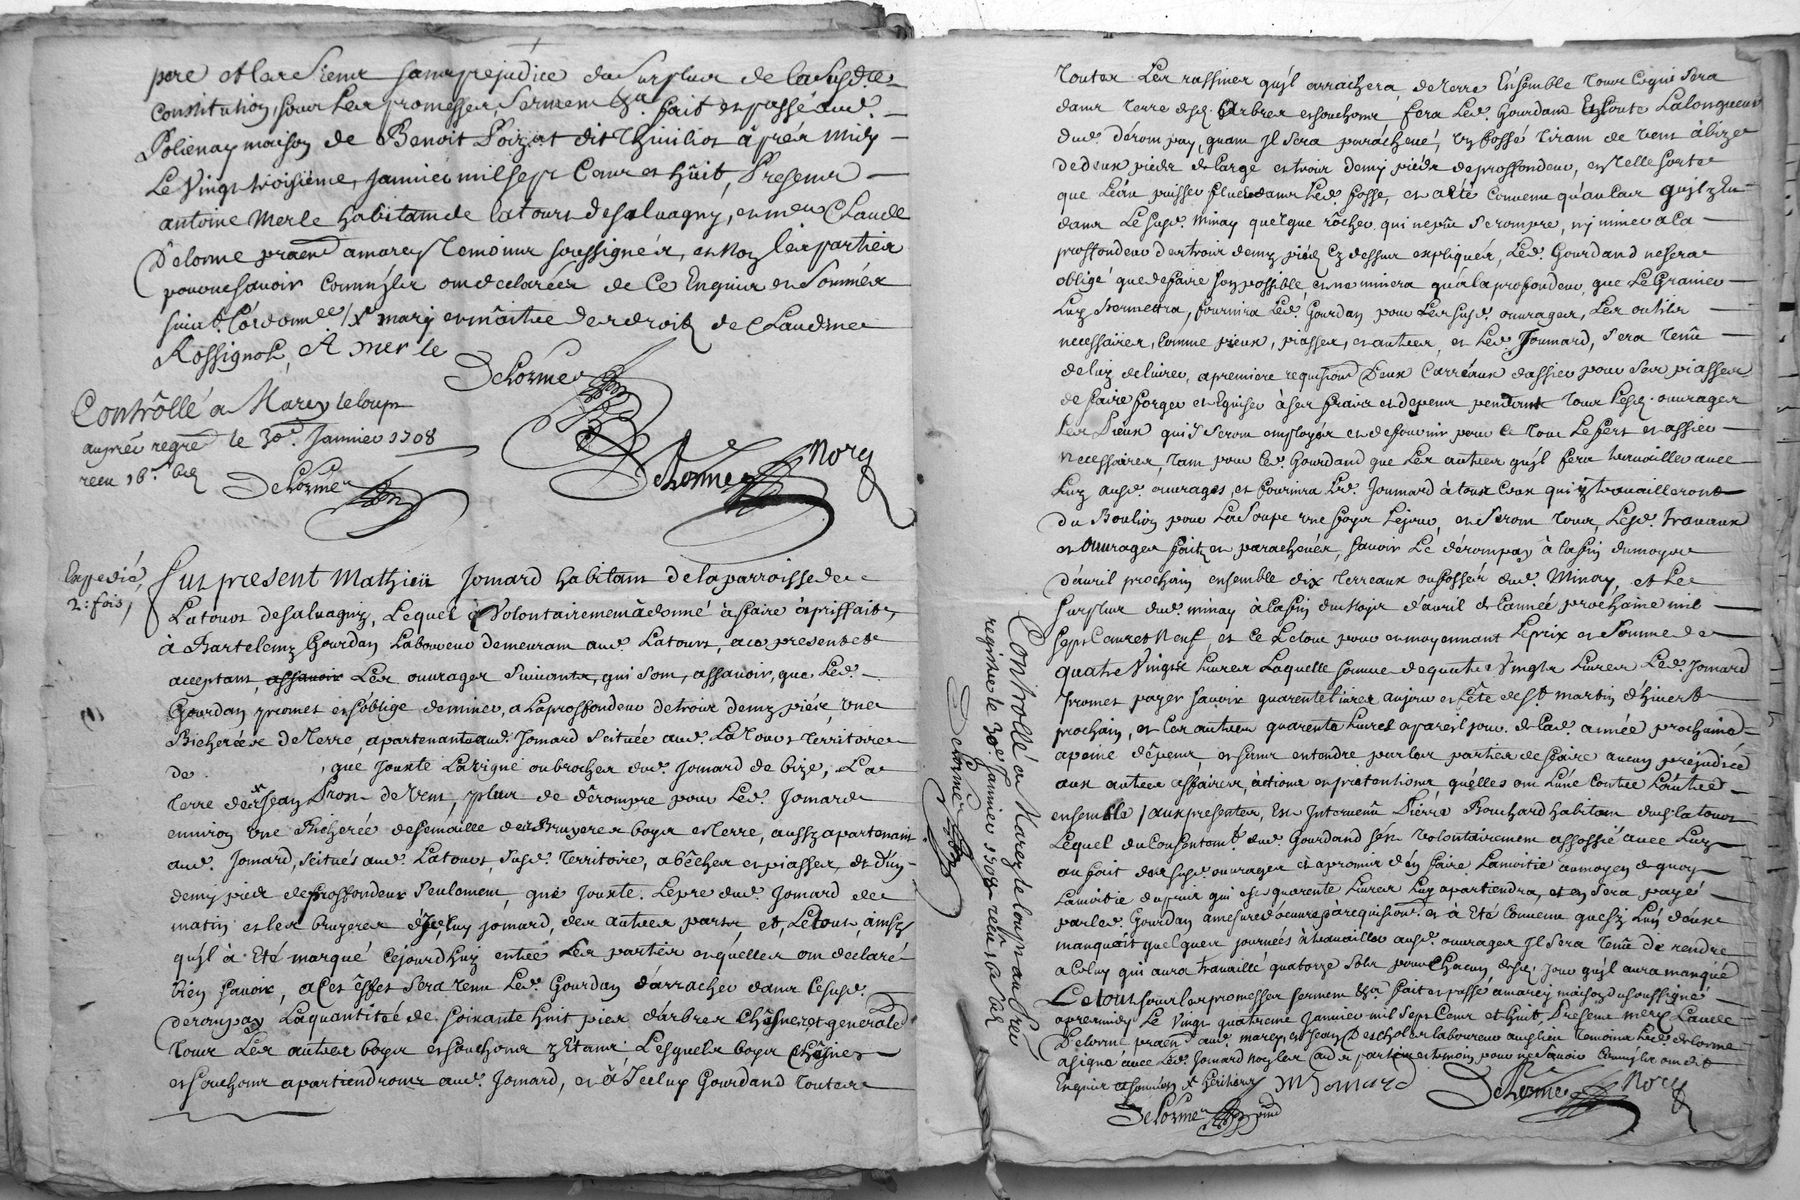 pere et la sienne sans prejudice du surplus de la susd.e
Constitution, sous les promesses, sermens &a. fait et passé aud.
Polienay maison de Benoit Poizat dit Thiviliot âprés midy
Le Vingt troisiéme Janvier mil sept Cens et hüit, Presens
antoine Merle habitant de latour desalvagny, et me Claude
Delorme praen amarcy Temoins soussignés, et Non les parties
pour ne sçavoir comm'ils ont declarées de ce Enquis et Sommés
suivt. L'ordonnce / x mary et mâitre des droits de Claudine
Rossignol, A merle
Delorme
Contrôllé a Marcy le loup
au pré regre le 30e. Janvier 1708
receu 16s. 6d
Delorme
Delorme Nore
Expedié,
2: fois,
Fut present Mathieü Jomard habitant de la parroisse de
Latour de salvagny, Lequel a Volontairement â donné â faire â priffait,
à Bartelemy Gourdan Laboureur demeurant aud. Latour, ace present et
acceptant, assavoir Les ouvrages Suivants, qui sont, assavoir, que Led.
Gourdan promet et s'oblige de miner, a La proffondeur de trois demy pieds, une
Bicherée de Terre, apartenante aud. Jomard Scituée aud. La Tour Territoire
de , que Jouxte La vigne ou brochet dud. Jomard de bize, La
Terre de sr Jean Pron de Vent, plus de dérompre pour Led. Jomard
environ une Bicherée de semaille des Bruyeres boys et Terre, aussy apartenant
aud. Jomard, scitués aud. Latour, susd. Territoire, a bêcher et piasser, et d'un
demy pied de proffondeur Seulement, qui Jouxte Le pré dud. Jomard de
matin et les bruyeres d'Iceluy Jomard, des autres parts et, Le tout âinsy
qu'il â Eté marqué cejourd'huy entre Les parties et qu'elles ont declaré
bien sçavoir, a Ces effets sera tenu Led. Gourdan d'arracher dans Le susd.
derompay La quantitée de soixante huit pies d'arbres Châsnes et generalet
Tous Les autres boys et souchons y Etans, Lesquels boys Châsnes
et souchons apartiendront aud. Jomard, et â Iceluy Gourdand toutes
toutes Les rassines qu'il arrachera de terre Ensemble tout ce qui sera
dans terre desd. Arbres et souchons fera Led. Gourdand En toute La longueur
dud. dérompay, quant Il sera parâchevé, un fossé tirant de vent â bize
de deux pieds de large et trois demy pieds de proffondeur, en telle sorte
que L'eau puisse fluer dans Led. fossé, et a eté Convenu qu'au cas qu'il y Eu
dans Le susd. Minay quelque rôcher qui ne peût se rompre, ny miner a La
proffondeur des trois demy pieds cy dessus expliqués, Led. Gourdand ne sera
obligé que de faire son possible et ne minera qu'a la profondeur que Le Granier
Luy permettra, fournira Led. Gourdan pour Les susd. ouvrages, Les outils
necessaires, Comme pieux, piasses, et autres, et Led. Joumard, sera tenû
de luy delivrer, a premiere requisition Deux Carréaux d'assier pour ses piasses
de faire forger et Eguiser â ses fraix et depens pendant tout Lesd. ouvrages
Les Pieux qui y seront employés et de fournir pour ce tout Le fert et assier
necessaires, tant pour led. Gourdand que Les autres qu'il fera travailler avec
Luy ausd. ouvrages, et fournira Led. Joumard â tous Ceux qui y travailleront
du Boulion pour La soupe une foys Le jour, et seront tous Lesd. travaux
et ouvrages faits et parachevés, sçavoir Le dérompay â la fin du moys
d'avril prochain ensemble dix terreaux ou fossés dud. Minay, et Le
surplus dud. minay â la fin du Moys d'avril de L'année prochaine mil
sept Cens et Neuf, et Ce Le tout pour et moyennant Le prix et Somme de
quatre Vingts Livres Laquelle somme de quatre Vingts Livres Led. Jomard
Promet payer sçavoir quarente livres au jour et fête de St. martin d'hivert
prochain, et Les autres quarente Livres a pareil jour de Lad. année prochaine
a peine de depens, et sans entendre par les parties de faire aucun prejudice
aux autres affaires, actions et pretentions, qu'elles ont L'une Contre L'autre
ensemble / aux presentes, Est Intervenû Pierre Bouchard habitant dud. latour
Lequel du Consentemt. dud. Gourdand s'est volontairement assossié avec Luy
au fait des susd. ouvrages et a promis d'en faire La moitié au moyen de quoy
La moitié du prix qui est quarente Livres Luy apartiendra, et en sera payé
par led. Gourdan a mesure d'oeuvre et â requisition. et â Eté Convenu que sy L'un d'eux
manquait quelques journées â travailler ausd. ouvrages Il sera tenû de rendre
a Celuy qui aura travaillé quatorze sols pour Chacun, desd. jour qu'il aura manqué
Le tout sous Les promesses serment &a. fait et passé a marcy maison du soussigné
apres midy Le Vingt quatreme Janvier mil sept Cens et huit, Presens mere Claude
Delorme praen aud. marcy, et Jean Descholes laboureur aud. lieu temoins Led. Delorme
a signé avec Led. Jomard Non les autres parties et temoin pour ne sçavoir Comm'ils ont dit
Enquis et sommés M Jomard Delorme Nore
Delorme
Controllé a Marcy le loup au livre
registre le 30e Janvier 1708 receu 16s 6d
Delorme